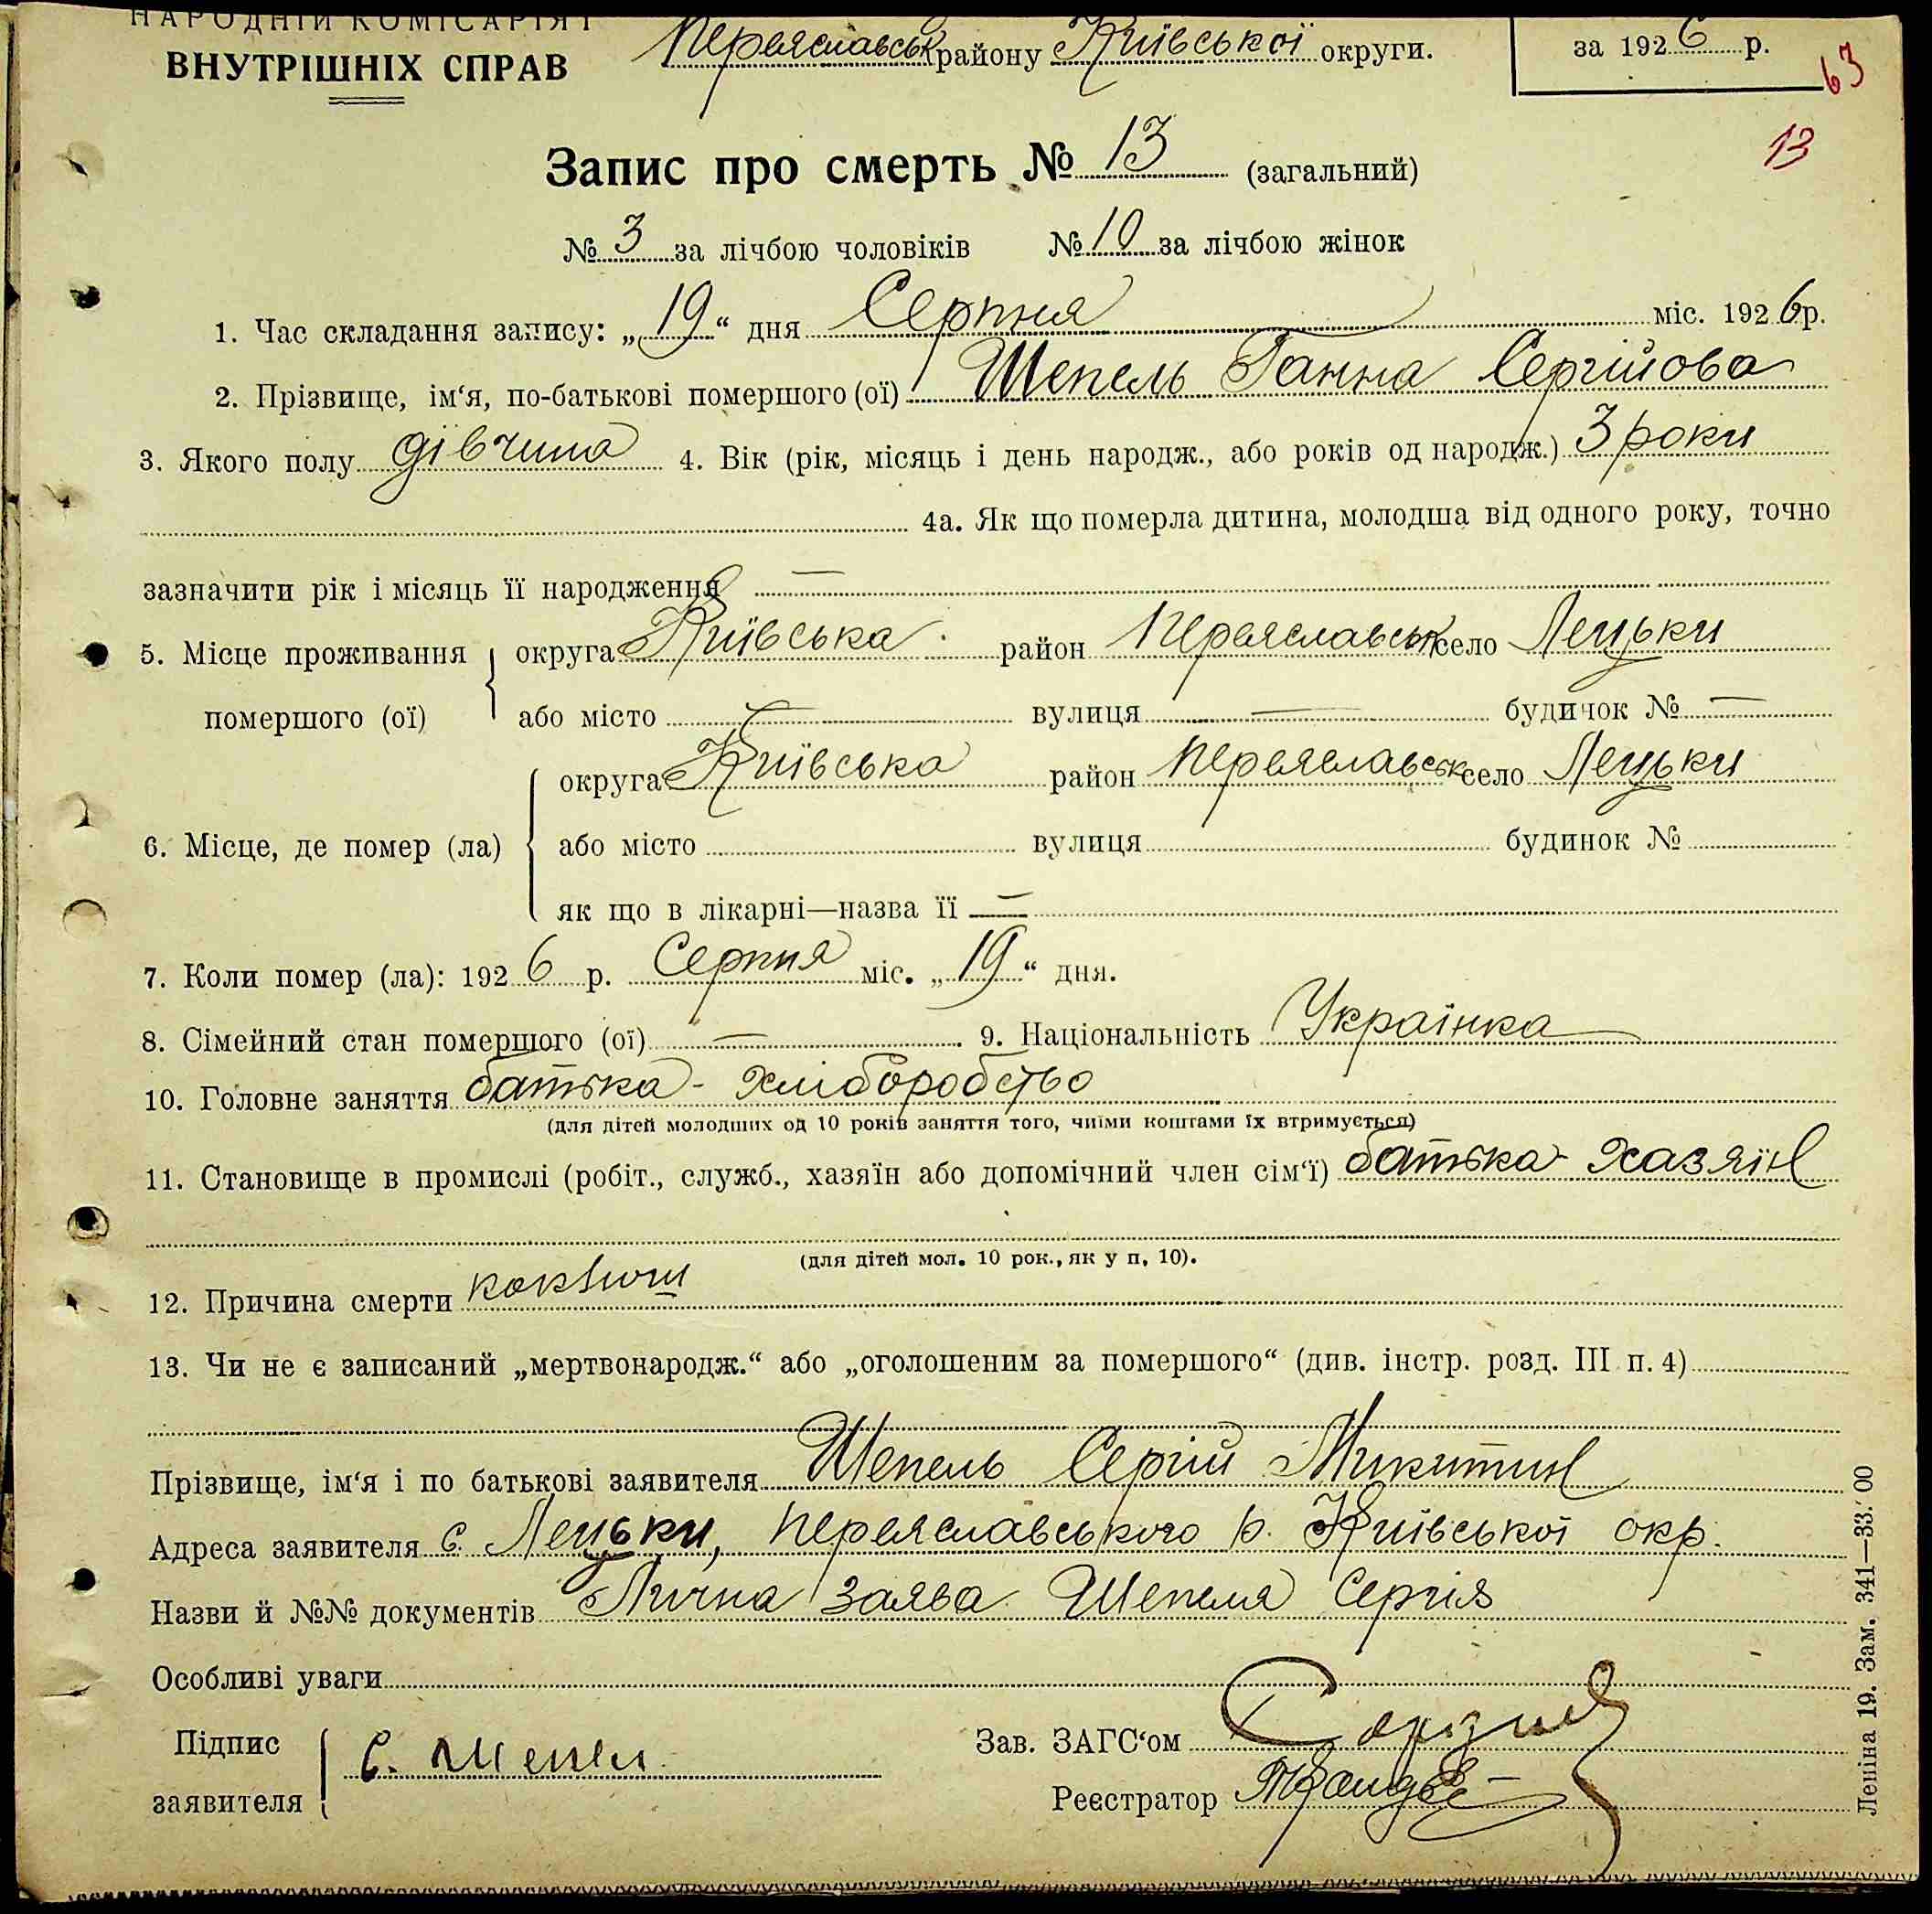 НАРОДНІЙ КОМІСАРІЯТ
ВНУТРІШНІХ СПРАВ
Переяславськ району Київської округи.
за 1926 р.
63
13
Запис про смерть № 13 (загальний)
№ 3 за лічбою чоловіків № 10 за лічбою жінок
1. Час складання запису: „19“ дня Серпня міс. 1926 р.
2. Прізвище, ім‘я, по-батькові помершого (ої) Шепель Ганна Сергійова
3. Якого полу дівчина 4. Вік (рік, місяць і день народж., або років од народж.) 3 роки
4а. Як що померла дитина, молодша від одного року, точно
зазначити рік і місяць її народження —
5. Місце проживання округа Київська район Переяславськ село Лецьки
помершого (ої) або місто — вулиця — будинок № —
округа Київська район Переяславськ село Лецьки
6. Місце, де помер (ла) або місто вулиця будинок №
як що в лікарні—назва її —
7. Коли помер (ла): 1926 р. Серпня міс. „19“ дня.
8. Сімейний стан помершого (ої) — 9. Національність Українка
10. Головне заняття батька - хліборобство
(для дітей молодших од 10 років заняття того, чиїми коштами їх втримується)
11. Становище в промислі (робіт., служб., хазяїн або допомічний член сім‘ї) батька - хазяїн
(для дітей мол. 10 рок., як у п, 10).
12. Причина смерти коклюш
13. Чи не є записаний „мертвонародж.“ або „оголошеним за помершого“ (див. інстр. розд. III п. 4)
Прізвище, ім‘я і по батькові заявителя Шепель Сергій Микитин
Адреса заявителя с. Лецьки, Переяславського р. Київської окр.
Назви й №№ документів Лична заява Шепеля Сергія
Особливі уваги
Підпис заявителя С. Шепель
Зав. ЗАГС‘ом
Реєстратор
Леніна 19. Зам. 341—33.′00